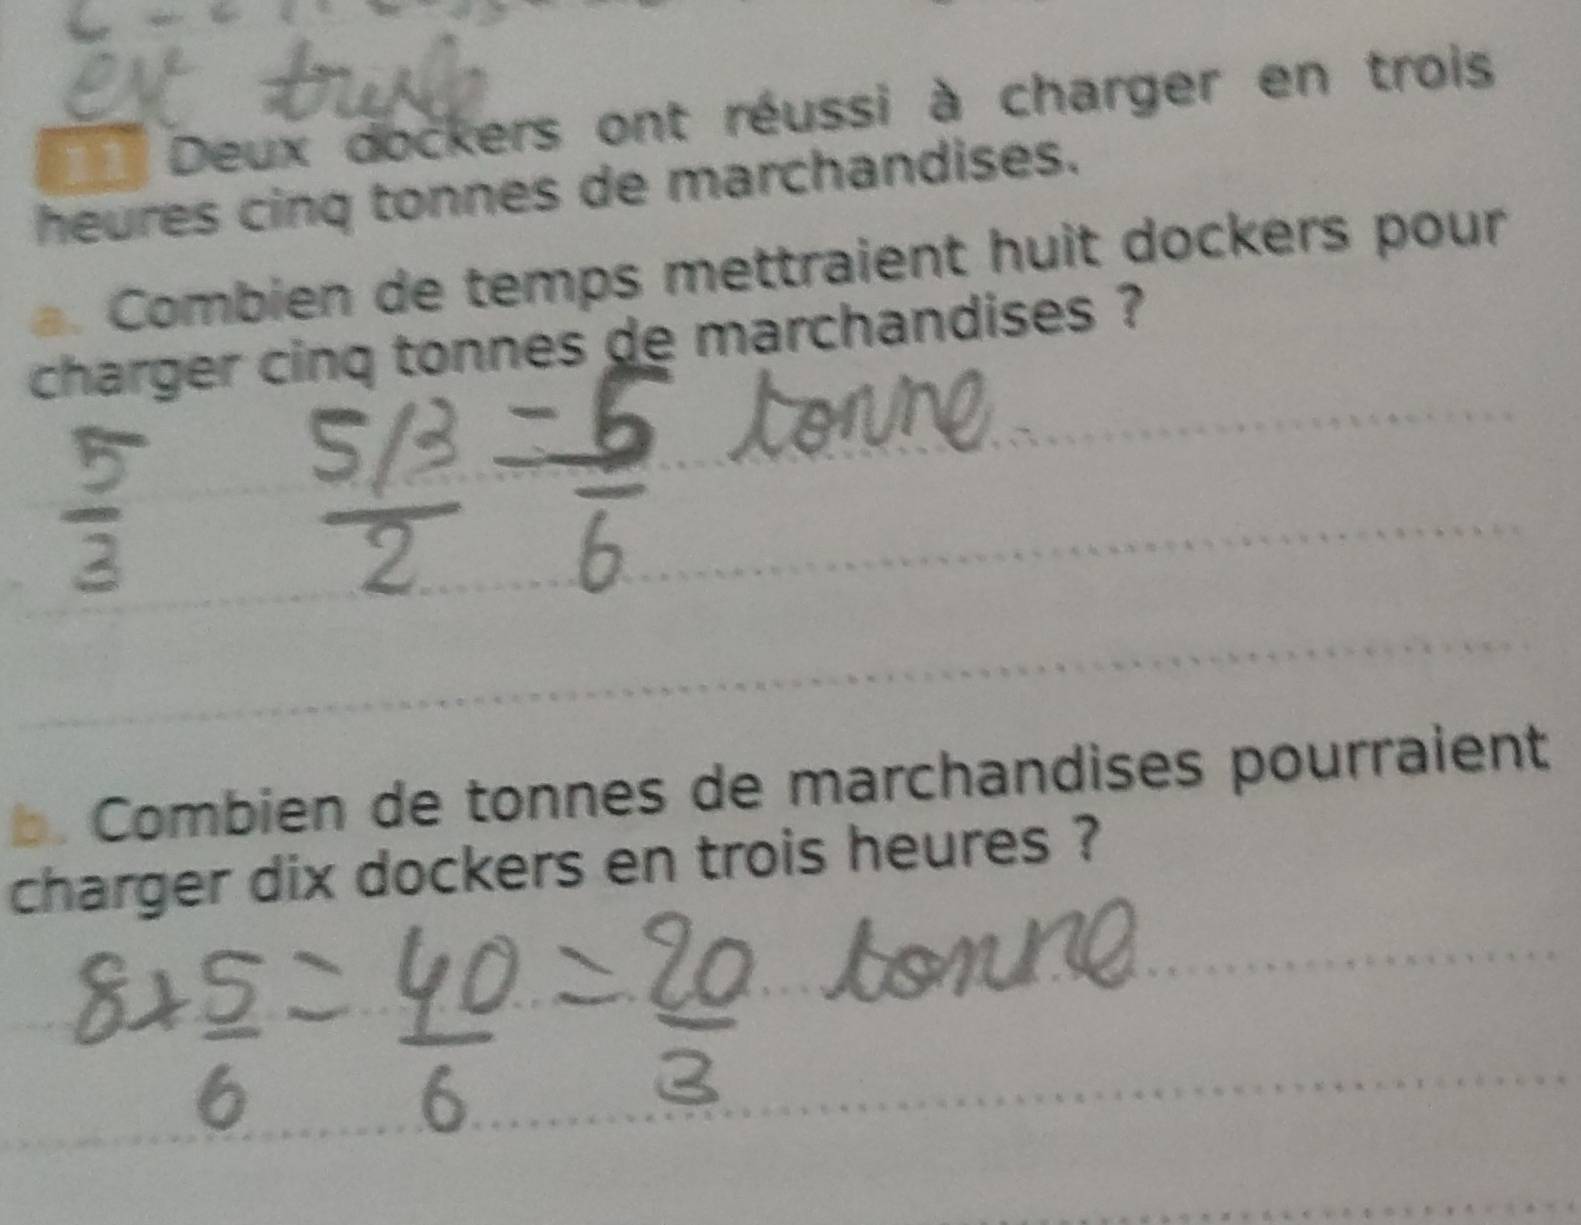 est
11 Deux dockers ont réussi à charger en trois
heures cinq tonnes de marchandises.
a. Combien de temps mettraient huit dockers pour
charger cinq tonnes de marchandises ?
5/3 (5/3)/2 = 5/6 tonne
b. Combien de tonnes de marchandises pourraient
charger dix dockers en trois heures ?
8 x 5/6 = 40/6 = 20/3 tonne